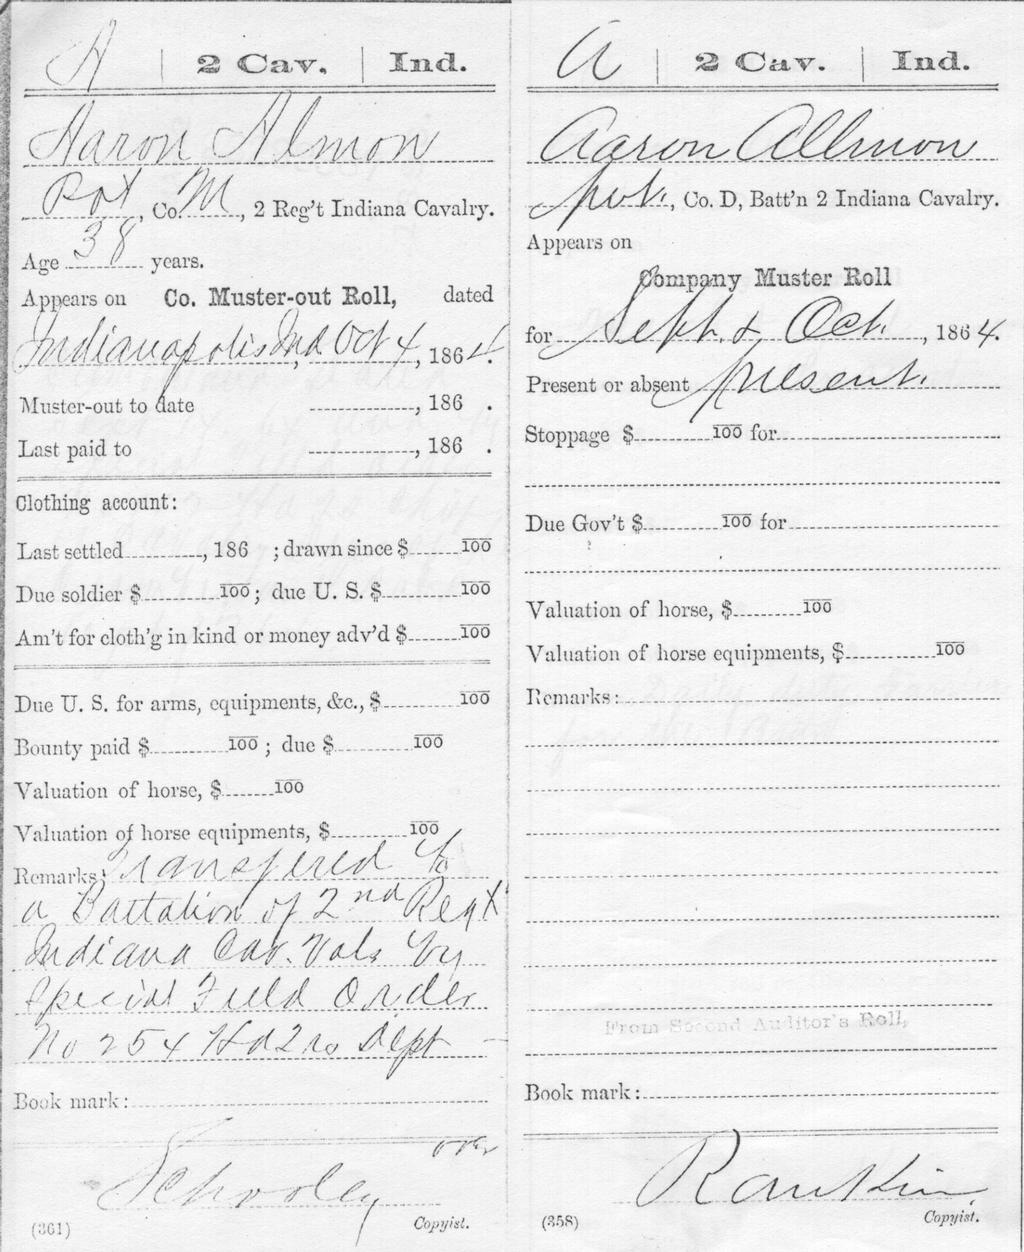 A | 2 Cav. | Ind.
Aaron Almon
Pvt, Co. M, 2 Reg't Indiana Cavalry.
Age 38 years.
Appears on Co. Muster-out Roll, dated
Indianapolis Ind Oct 4, 1864.
Muster-out to date , 186 .
Last paid to , 186 .
Clothing account:
Last settled , 186 ; drawn since $ 100
Due soldier $ 100; due U. S. $ 100
Am't for cloth'g in kind or money adv'd $ 100
Due U. S. for arms, equipments, &c., $ 100
Bounty paid $ 100; due $ 100
Valuation of horse, $ 100
Valuation of horse equipments, $ 100
Remarks: Transfered to
a Battalion of 2nd Regt
Indiana Cav. Vols by
Special Field Order
No 254 Hd Qrs Dept
Book mark:
over
Schooley
(361) Copyist.
A | 2 Cav. | Ind.
Aaron Allmon
pvt., Co. D, Batt'n 2 Indiana Cavalry.
Appears on
Company Muster Roll
for Sept. & Oct., 1864.
Present or absent present.
Stoppage $ 100 for
Due Gov't $ 100 for
Valuation of horse, $ 100
Valuation of horse equipments, $ 100
Remarks:
From Second Auditor's Roll,
Book mark:
Rankin.
(358) Copyist.